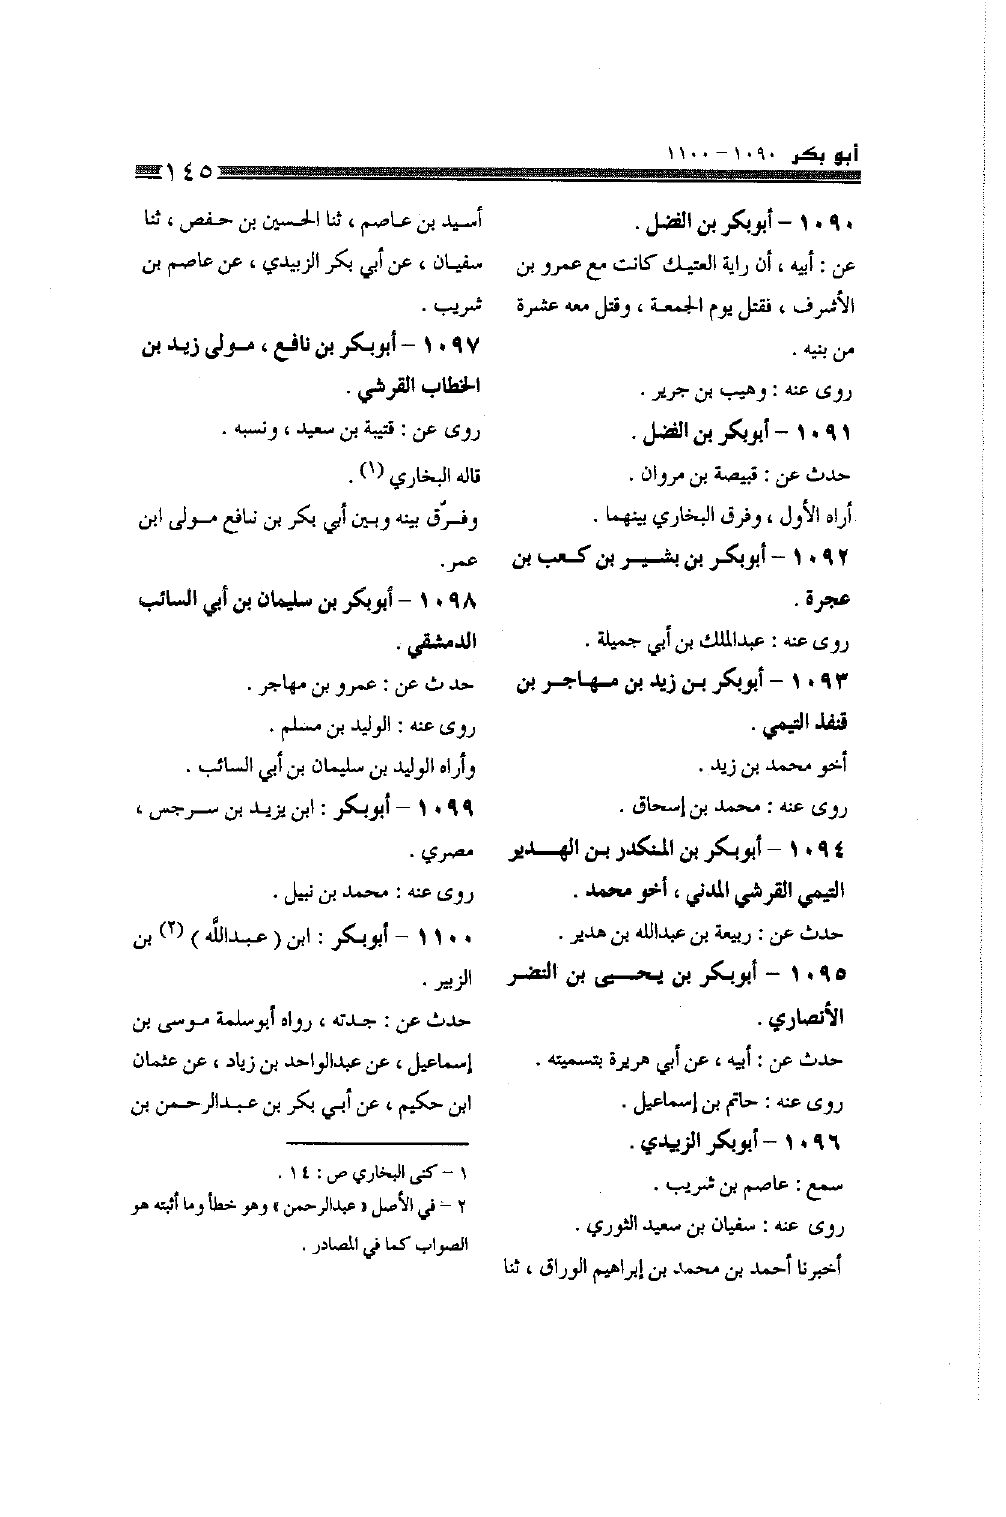 أبو بكر ١٠٩٠ – ١١٠٠
١٤٥
١٠٩٠ – أبوبكر بن الفضل .
عن : أبيه ، أن راية العتيك كانت مع عمرو بن
الأشرف ، فقتل يوم الجمعة ، وقتل معه عشرة
من بنيه .
روى عنه : وهيب بن جرير .
١٠٩١ – أبوبكر بن الفضل .
حدث عن : قبيصة بن مروان .
أراه الأول ، وفرق البخاري بينهما .
١٠٩٢ – أبوبكر بن بشير بن كعب بن
عجرة .
روى عنه : عبدالملك بن أبي جميلة .
١٠٩٣ – أبوبكر بن زيد بن مهاجر بن
قنفذ التيمي .
أخو محمد بن زيد .
روى عنه : محمد بن إسحاق .
١٠٩٤ – أبوبكر بن المنكدر بن الهدير
التيمي القرشي المدني ، أخو محمد .
حدث عن : ربيعة بن عبدالله بن هدير .
١٠٩٥ – أبوبكر بن يحيى بن النضر
الأنصاري .
حدث عن : أبيه ، عن أبي هريرة بتسميته .
روى عنه : حاتم بن إسماعيل .
١٠٩٦ – أبوبكر الزبيدي .
سمع : عاصم بن شريب .
روى عنه : سفيان بن سعيد الثوري .
أخبرنا أحمد بن محمد بن إبراهيم الوراق ، ثنا
أسيد بن عاصم ، ثنا الحسين بن حفص ، ثنا
سفيان ، عن أبي بكر الزبيدي ، عن عاصم بن
شريب .
١٠٩٧ – أبوبكر بن نافع ، مولى زيد بن
الخطاب القرشي .
روى عن : قتيبة بن سعيد ، ونسبه .
قاله البخاري (١) .
وفرّق بينه وبين أبي بكر بن نافع مولى ابن
عمر .
١٠٩٨ – أبوبكر بن سليمان بن أبي السائب
الدمشقي .
حدث عن : عمرو بن مهاجر .
روى عنه : الوليد بن مسلم .
وأراه الوليد بن سليمان بن أبي السائب .
١٠٩٩ – أبوبكر : ابن يزيد بن سرجس ،
مصري .
روى عنه : محمد بن نبيل .
١١٠٠ – أبوبكر : ابن ( عبداللَّه ) (٢) بن
الزبير .
حدث عن : جدته ، رواه أبوسلمة موسى بن
إسماعيل ، عن عبدالواحد بن زياد ، عن عثمان
ابن حكيم ، عن أبي بكر بن عبدالرحمن بن
١ – كنى البخاري ص : ١٤ .
٢ – في الأصل « عبدالرحمن » وهو خطأ وما أثبته هو
الصواب كما في المصادر .